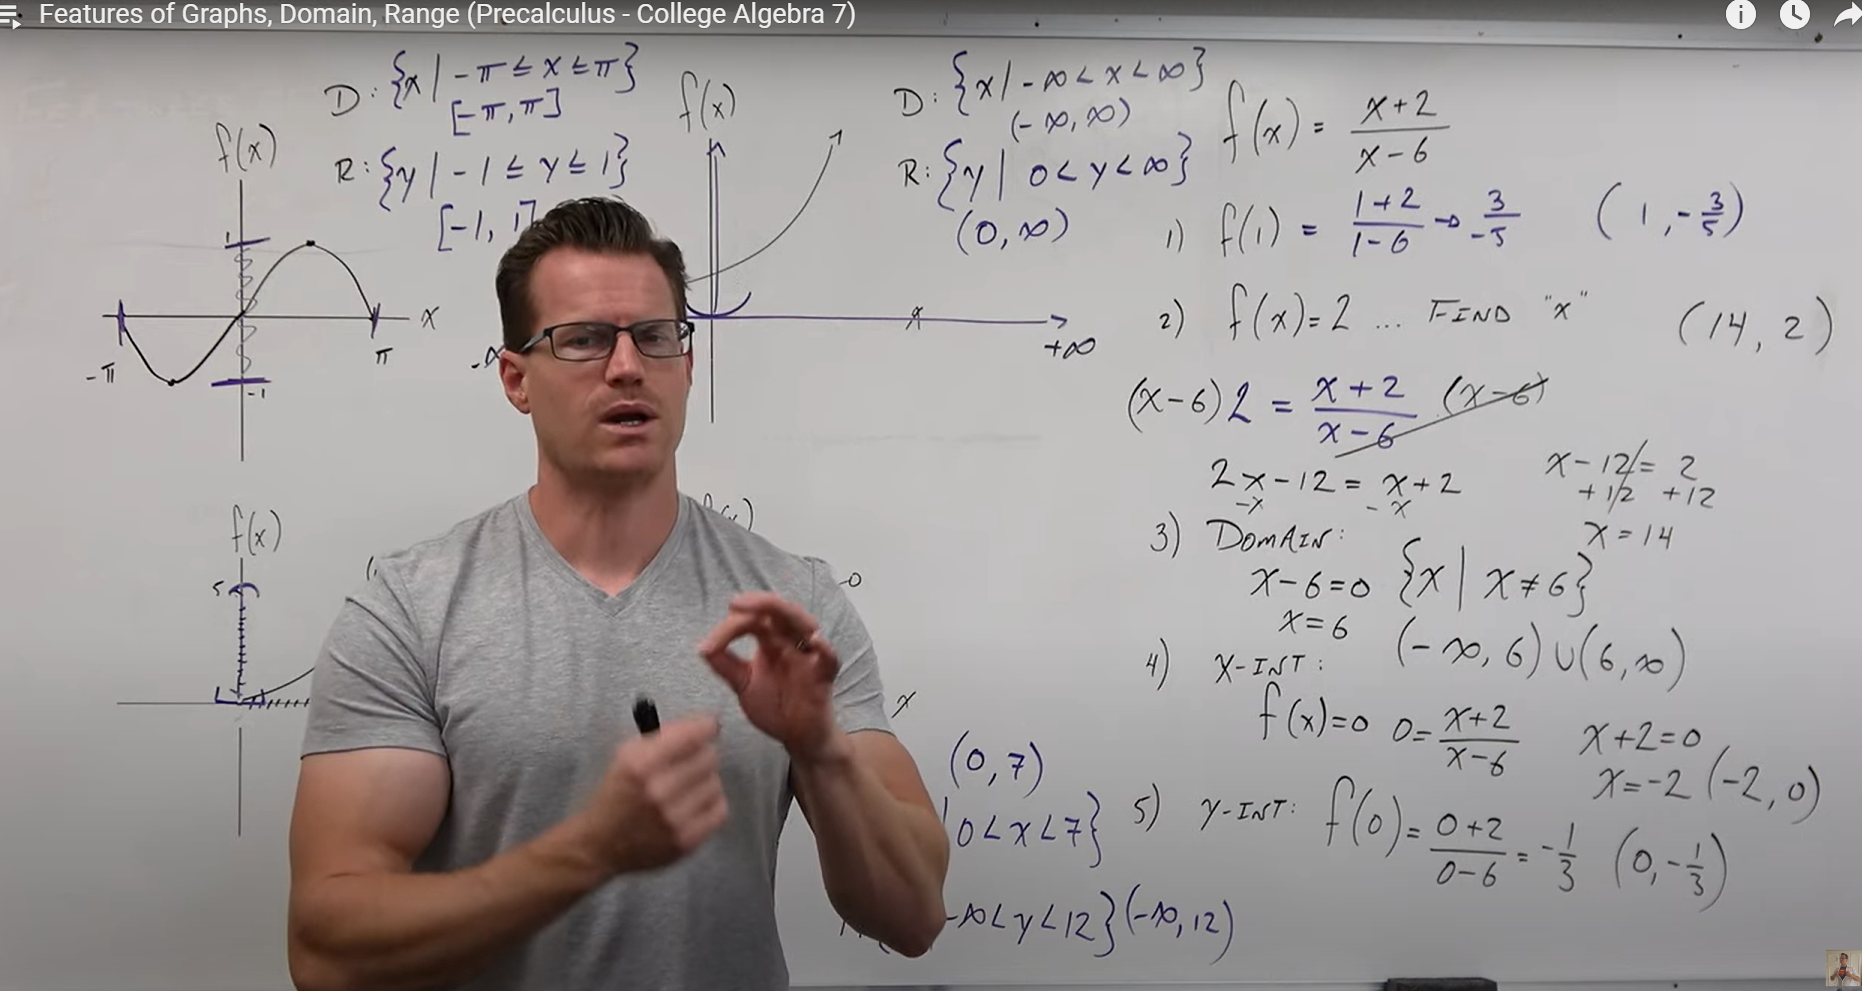 Features of Graphs, Domain, Range (Precalculus - College Algebra 7)
D: {x | -π ≤ x ≤ π}
[-π, π]
R: {y | -1 ≤ y ≤ 1}
[-1, 1]
f(x)
1
-π
π
x
-1
f(x)
D: {x | -∞ < x < ∞}
(-∞, ∞)
R: {y | 0 < y < ∞}
(0, ∞)
x
+∞
f(x)
5
x
(0, 7)
0 < x < 7}
-∞ < y < 12} (-∞, 12)
f(x) = x+2 / x-6
1) f(1) = 1+2 / 1-6 → 3 / -5 (1, -3/5)
2) f(x) = 2 ... FIND "x" (14, 2)
(x-6) 2 = x+2 / x-6 (x-6)
2x - 12 = x + 2
-x -x
x - 12 = 2
+12 +12
x = 14
3) DOMAIN:
x - 6 = 0 {x | x ≠ 6}
x = 6 (-∞, 6) ∪ (6, ∞)
4) X-INT:
f(x) = 0 0 = x+2 / x-6 x + 2 = 0
x = -2 (-2, 0)
5) Y-INT: f(0) = 0+2 / 0-6 = -1/3 (0, -1/3)